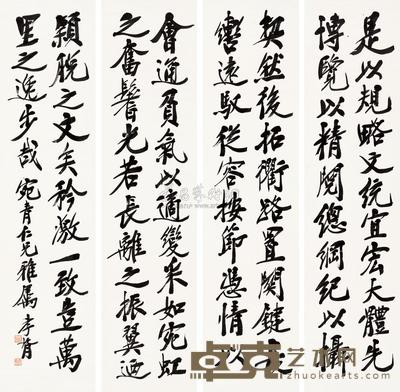 是以規略文統宜宏大體先
博覽以精閱總綱紀以攝
契然後拓衢路置關鍵長
轡遠馭從容按節憑情以
會通負氣以適變采如宛虹
之奮鬐光若長離之振翼迺
穎脫之文矣矜激一致豈萬
里之逸步哉 仁兄雅屬